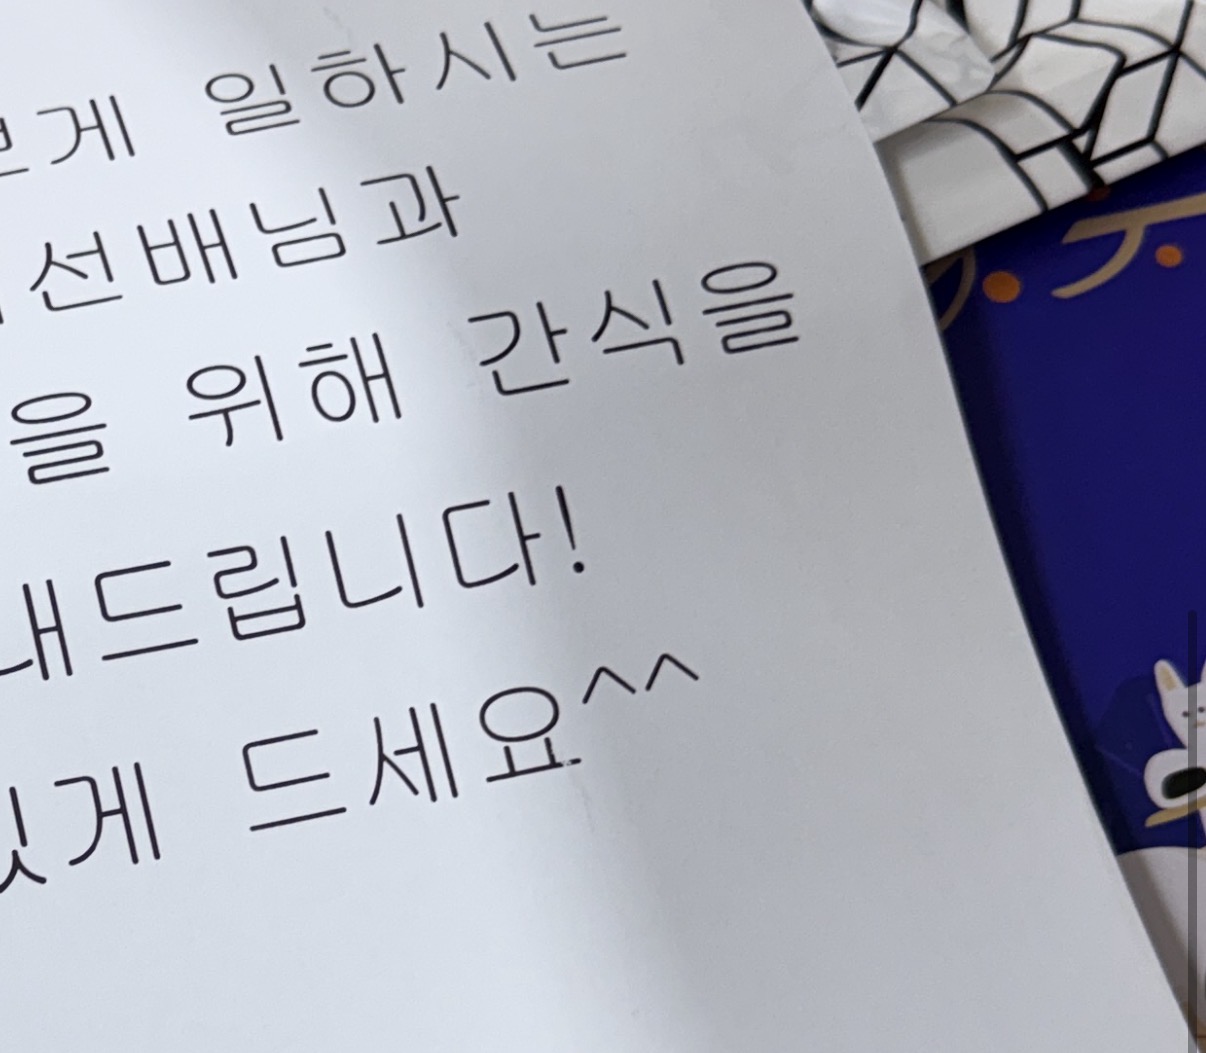 게 일하시는
선배님과
을 위해 간식을
내드립니다!
게 드세요^^